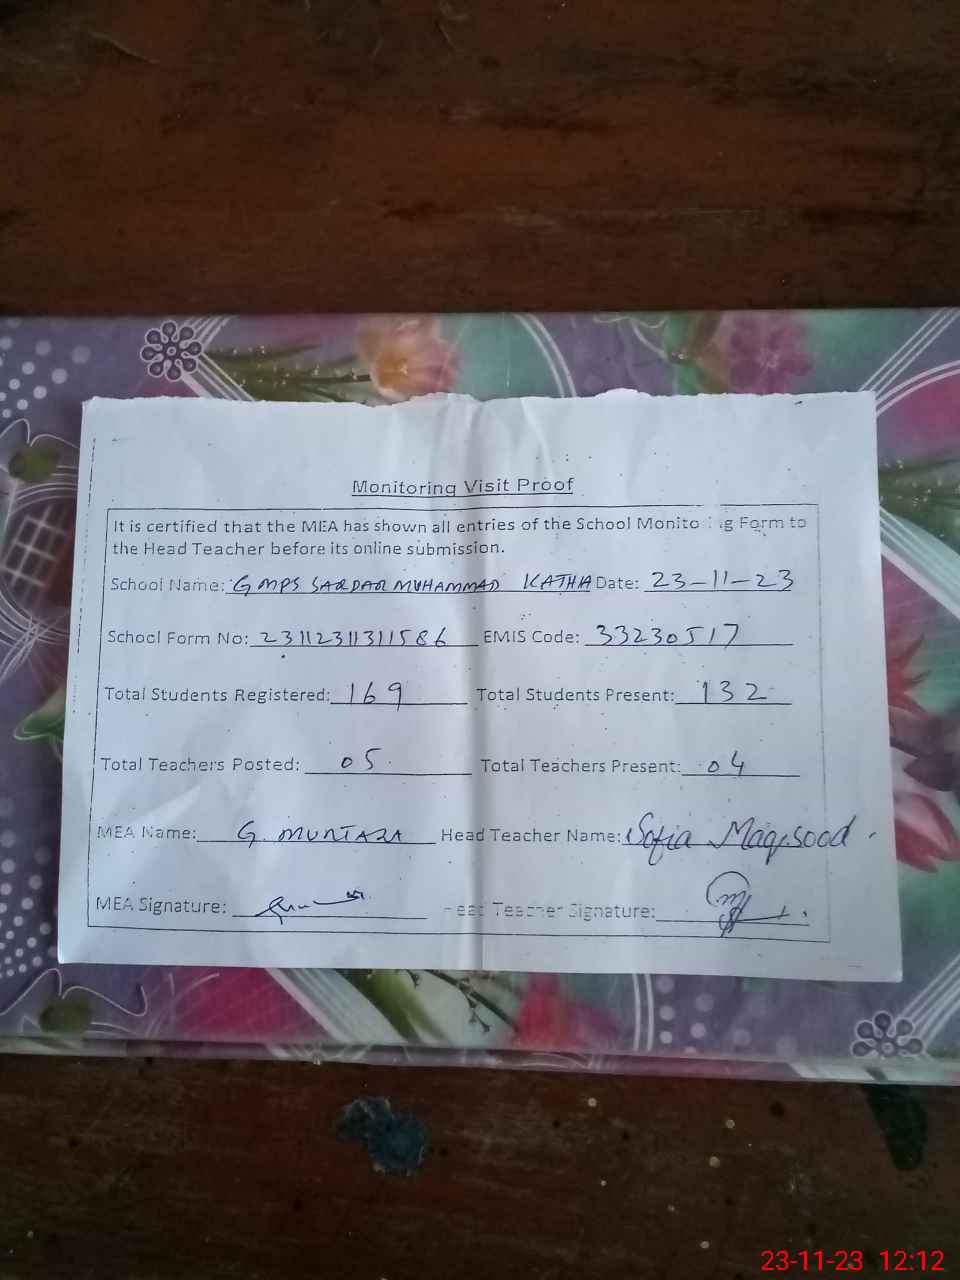 Monitoring Visit Proof
It is certified that the MEA has shown all entries of the School Monitoring Form to
the Head Teacher before its online submission.
School Name: GMPS SARDAR MUHAMMAD KATHIA Date: 23-11-23
School Form No: 2311231131 1586 EMIS Code: 33230517
Total Students Registered: 169 Total Students Present: 132
Total Teachers Posted: 05 Total Teachers Present: 04
MEA Name: G. MURTAZA Head Teacher Name: Sofia Maqsood
MEA Signature: Head Teacher Signature:
23-11-23 12:12